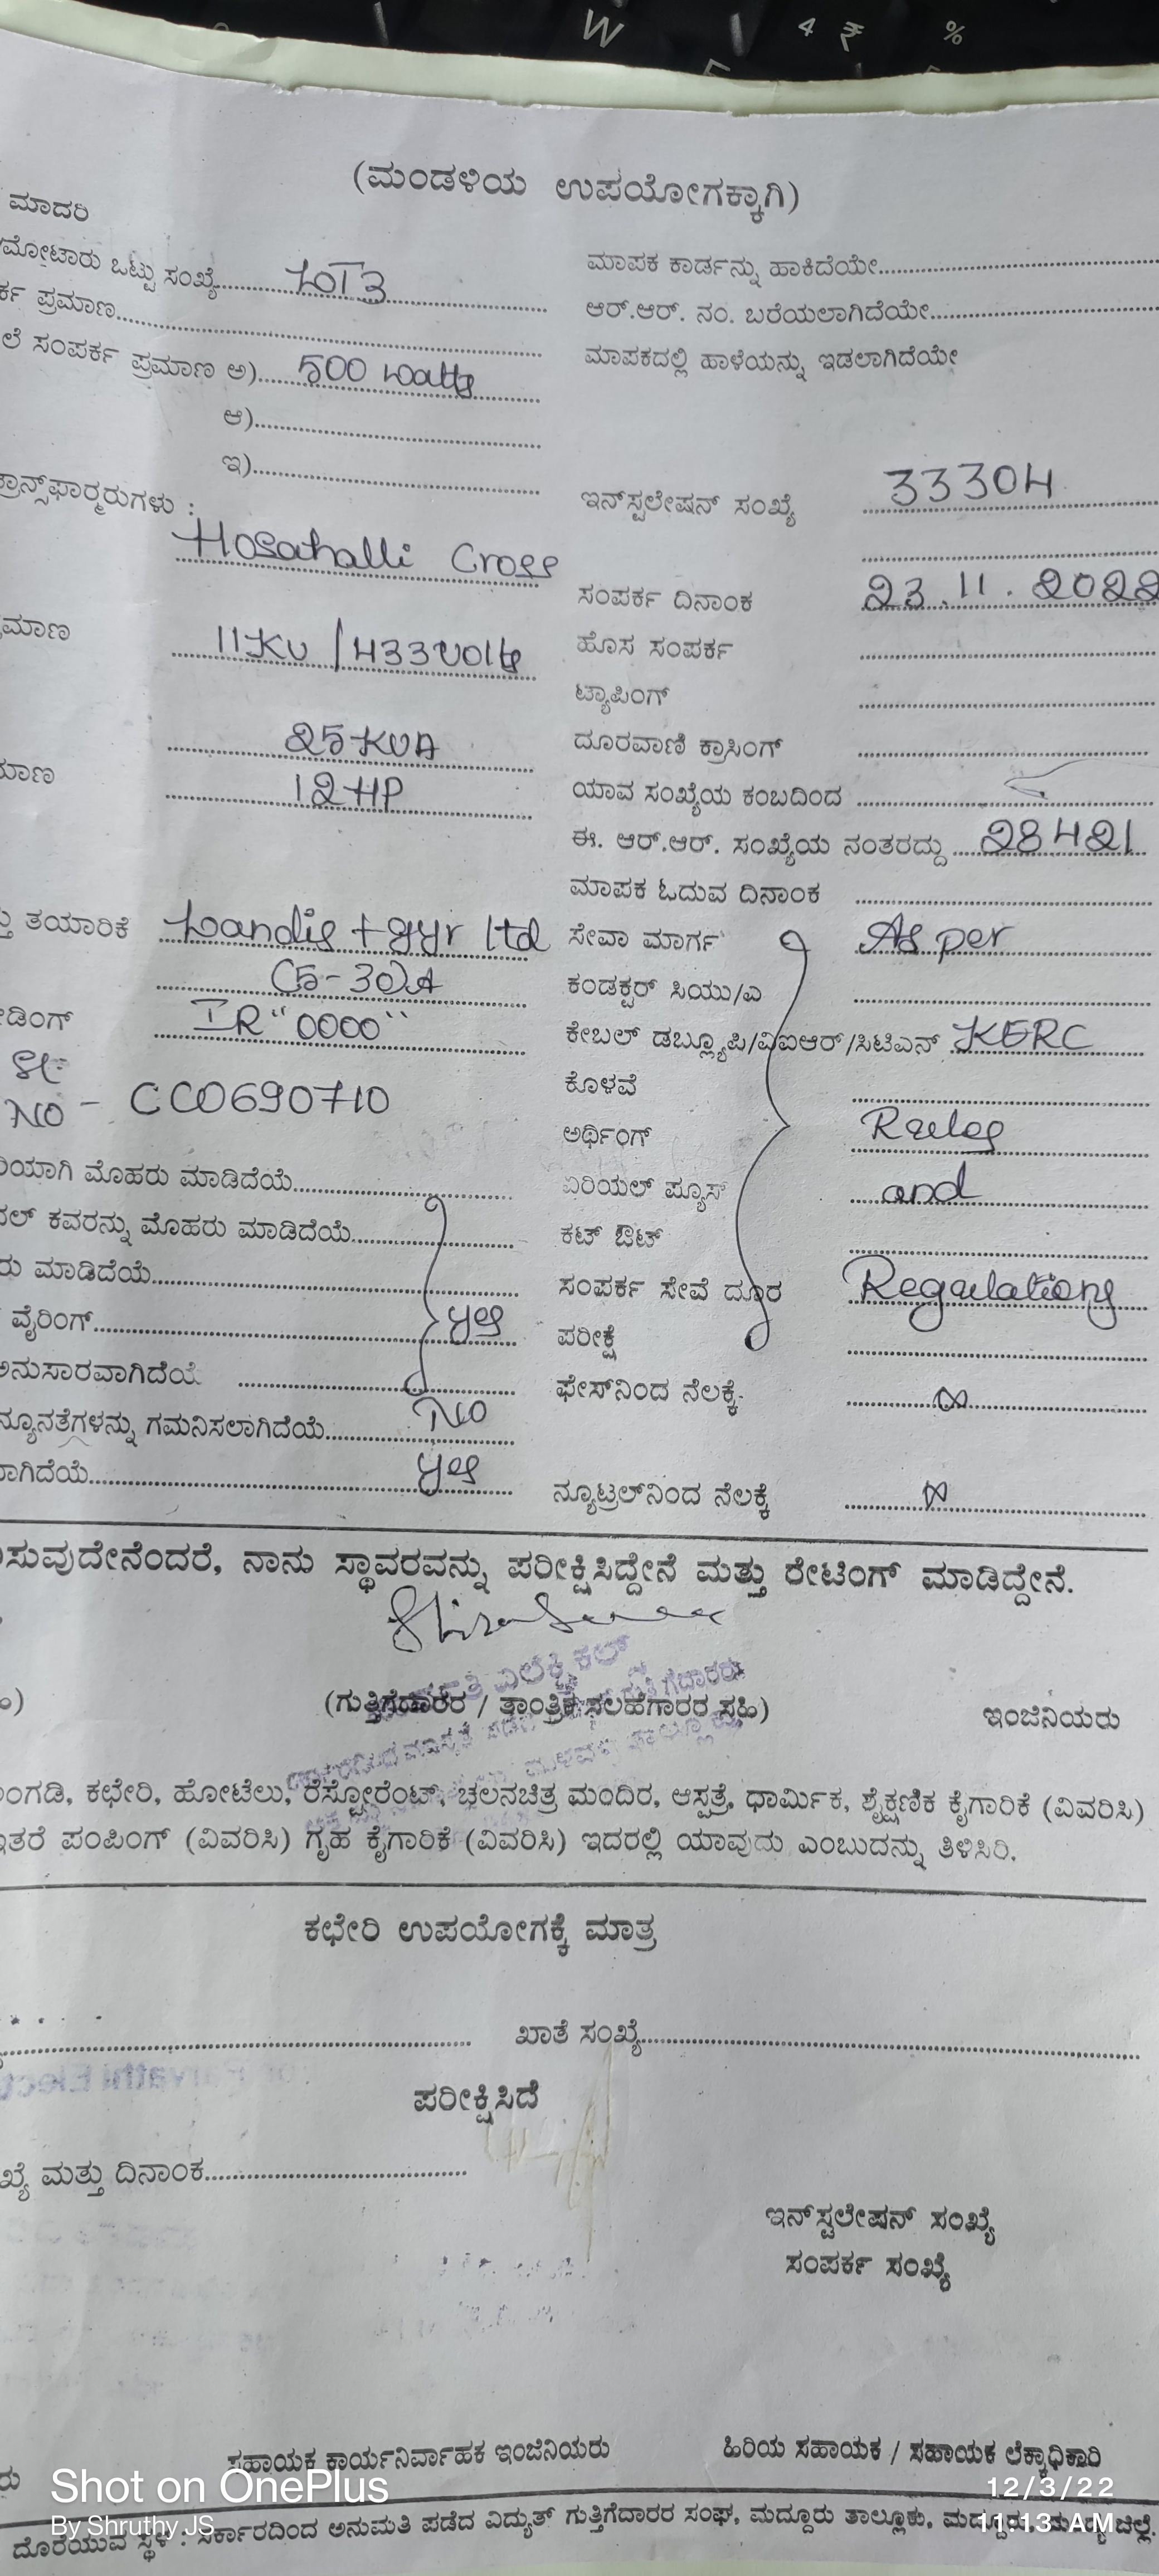 (ಮಂಡಳಿಯ ಉಪಯೋಗಕ್ಕಾಗಿ)
ಮಾದರಿ
ಮೋಟಾರು ಒಟ್ಟು ಸಂಖ್ಯೆ
ಮಾಪಕ ಕಾರ್ಡನ್ನು ಹಾಕಿದೆಯೇ
ರ್ಕ ಪ್ರಮಾಣ
ಆರ್.ಆರ್. ನಂ. ಬರೆಯಲಾಗಿದೆಯೇ
ಲೆ ಸಂಪರ್ಕ ಪ್ರಮಾಣ ಅ) 500 watts
ಮಾಪಕದಲ್ಲಿ ಹಾಳೆಯನ್ನು ಇಡಲಾಗಿದೆಯೇ
ಆ)
ಇ)
ಟ್ರಾನ್ಸ್‌ಫಾರ್‍ಮರುಗಳು :
ಇನ್‌ಸ್ಟಲೇಷನ್ ಸಂಖ್ಯೆ 33304
Hosahalli Cross
ಸಂಪರ್ಕ ದಿನಾಂಕ 23.11.2022
ಮಾಣ 11KV / 433 volts
ಹೊಸ ಸಂಪರ್ಕ
ಟ್ಯಾಪಿಂಗ್
25 KVA
ದೂರವಾಣಿ ಕ್ರಾಸಿಂಗ್
ಮಾಣ 12 HP
ಯಾವ ಸಂಖ್ಯೆಯ ಕಂಬದಿಂದ
ಈ. ಆರ್.ಆರ್. ಸಂಖ್ಯೆಯ ನಂತರದ್ದು 28421
ಮಾಪಕ ಓದುವ ದಿನಾಂಕ
ತ್ತು ತಯಾರಿಕೆ Landis + gyr ltd
ಸೇವಾ ಮಾರ್ಗ As per
(5-30)A
ಕಂಡಕ್ಟರ್ ಸಿಯು/ಎ
ಡಿಂಗ್ IR "0000"
ಕೇಬಲ್ ಡಬ್ಲ್ಯೂಪಿ/ವಿಐಆರ್/ಸಿಟಿಎನ್ KERC
Sl:
NO - CC0690710
ಕೊಳವೆ
ಅರ್ಥಿಂಗ್ Rules
ರಿಯಾಗಿ ಮೊಹರು ಮಾಡಿದೆಯೆ
ಏರಿಯಲ್ ಪ್ಯೂಸ್ and
ನಲ್ ಕವರನ್ನು ಮೊಹರು ಮಾಡಿದೆಯೆ
ಕಟ್ ಔಟ್
ರು ಮಾಡಿದೆಯೆ
ಸಂಪರ್ಕ ಸೇವೆ ದೂರ Regulations
ವೈರಿಂಗ್ yes
ಪರೀಕ್ಷೆ
ಅನುಸಾರವಾಗಿದೆಯೆ
ಫೇಸ್‌ನಿಂದ ನೆಲಕ್ಕೆ ∞
ನ್ಯೂನತೆಗಳನ್ನು ಗಮನಿಸಲಾಗಿದೆಯೆ NO
ಲಾಗಿದೆಯೆ yes
ನ್ಯೂಟ್ರಲ್‌ನಿಂದ ನೆಲಕ್ಕೆ ∞
ಸುವುದೇನೆಂದರೆ, ನಾನು ಸ್ಥಾವರವನ್ನು ಪರೀಕ್ಷಿಸಿದ್ದೇನೆ ಮತ್ತು ರೇಟಿಂಗ್ ಮಾಡಿದ್ದೇನೆ.
(ಗುತ್ತಿಗೆದಾರರ / ತಾಂತ್ರಿಕ ಸಲಹೆಗಾರರ ಸಹಿ) ಇಂಜಿನಿಯರು
ಅಂಗಡಿ, ಕಛೇರಿ, ಹೋಟೆಲು, ರೆಸ್ಟೋರೆಂಟ್, ಚಲನಚಿತ್ರ ಮಂದಿರ, ಆಸ್ಪತ್ರೆ, ಧಾರ್ಮಿಕ, ಶೈಕ್ಷಣಿಕ ಕೈಗಾರಿಕೆ (ವಿವರಿಸಿ)
ಇತರೆ ಪಂಪಿಂಗ್ (ವಿವರಿಸಿ) ಗೃಹ ಕೈಗಾರಿಕೆ (ವಿವರಿಸಿ) ಇದರಲ್ಲಿ ಯಾವುದು ಎಂಬುದನ್ನು ತಿಳಿಸಿರಿ.
ಕಛೇರಿ ಉಪಯೋಗಕ್ಕೆ ಮಾತ್ರ
ಖಾತೆ ಸಂಖ್ಯೆ
ಪರೀಕ್ಷಿಸಿದೆ
ಖ್ಯೆ ಮತ್ತು ದಿನಾಂಕ
ಇನ್‌ಸ್ಟಲೇಷನ್ ಸಂಖ್ಯೆ
ಸಂಪರ್ಕ ಸಂಖ್ಯೆ
ಸಹಾಯಕ ಕಾರ್ಯನಿರ್ವಾಹಕ ಇಂಜಿನಿಯರು ಹಿರಿಯ ಸಹಾಯಕ / ಸಹಾಯಕ ಲೆಕ್ಕಾಧಿಕಾರಿ
Shot on OnePlus
By Shruthy JS
12/3/22
11:13 AM
ದೊರೆಯುವ ಸ್ಥಳ : ಸರ್ಕಾರದಿಂದ ಅನುಮತಿ ಪಡೆದ ವಿದ್ಯುತ್ ಗುತ್ತಿಗೆದಾರರ ಸಂಘ, ಮದ್ದೂರು ತಾಲ್ಲೂಕು, ಮದ್ದೂರು, ಮಂಡ್ಯ ಜಿಲ್ಲೆ.